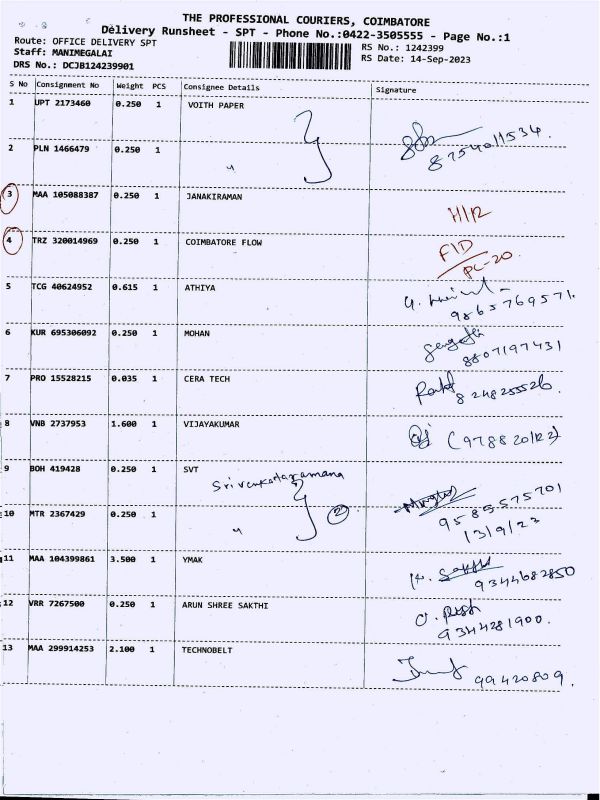 THE PROFESSIONAL COURIERS, COIMBATORE
Delivery Runsheet - SPT - Phone No.:0422-3505555 - Page No.:1
Route: OFFICE DELIVERY SPT
RS No.: 1242399
Staff: MANIMEGALAI
RS Date: 14-Sep-2023
DRS No.: DCJB124239901
S No Consignment No Weight PCS Consignee Details Signature
1 UPT 2173460 0.250 1 VOITH PAPER
2 PLN 1466479 0.250 1 " 8754011534.
3 MAA 105088387 0.250 1 JANAKIRAMAN H/R
4 TRZ 320014969 0.250 1 COIMBATORE FLOW F/D
PC-20.
5 TCG 40624952 0.615 1 ATHIYA
9865769571.
6 KUR 695306092 0.250 1 MOHAN
8807197431
7 PRO 15528215 0.035 1 CERA TECH
8248255526
8 VNB 2737953 1.600 1 VIJAYAKUMAR
9 BOH 419428 0.250 1 SVT
Srivenkataramana
9585575701
10 MTR 2367429 0.250 1 " 2
13/9/23
11 MAA 104399861 3.500 1 YMAK
9344682850
12 VRR 7267500 0.250 1 ARUN SHREE SAKTHI
9344281900.
13 MAA 299914253 2.100 1 TECHNOBELT
99420809.